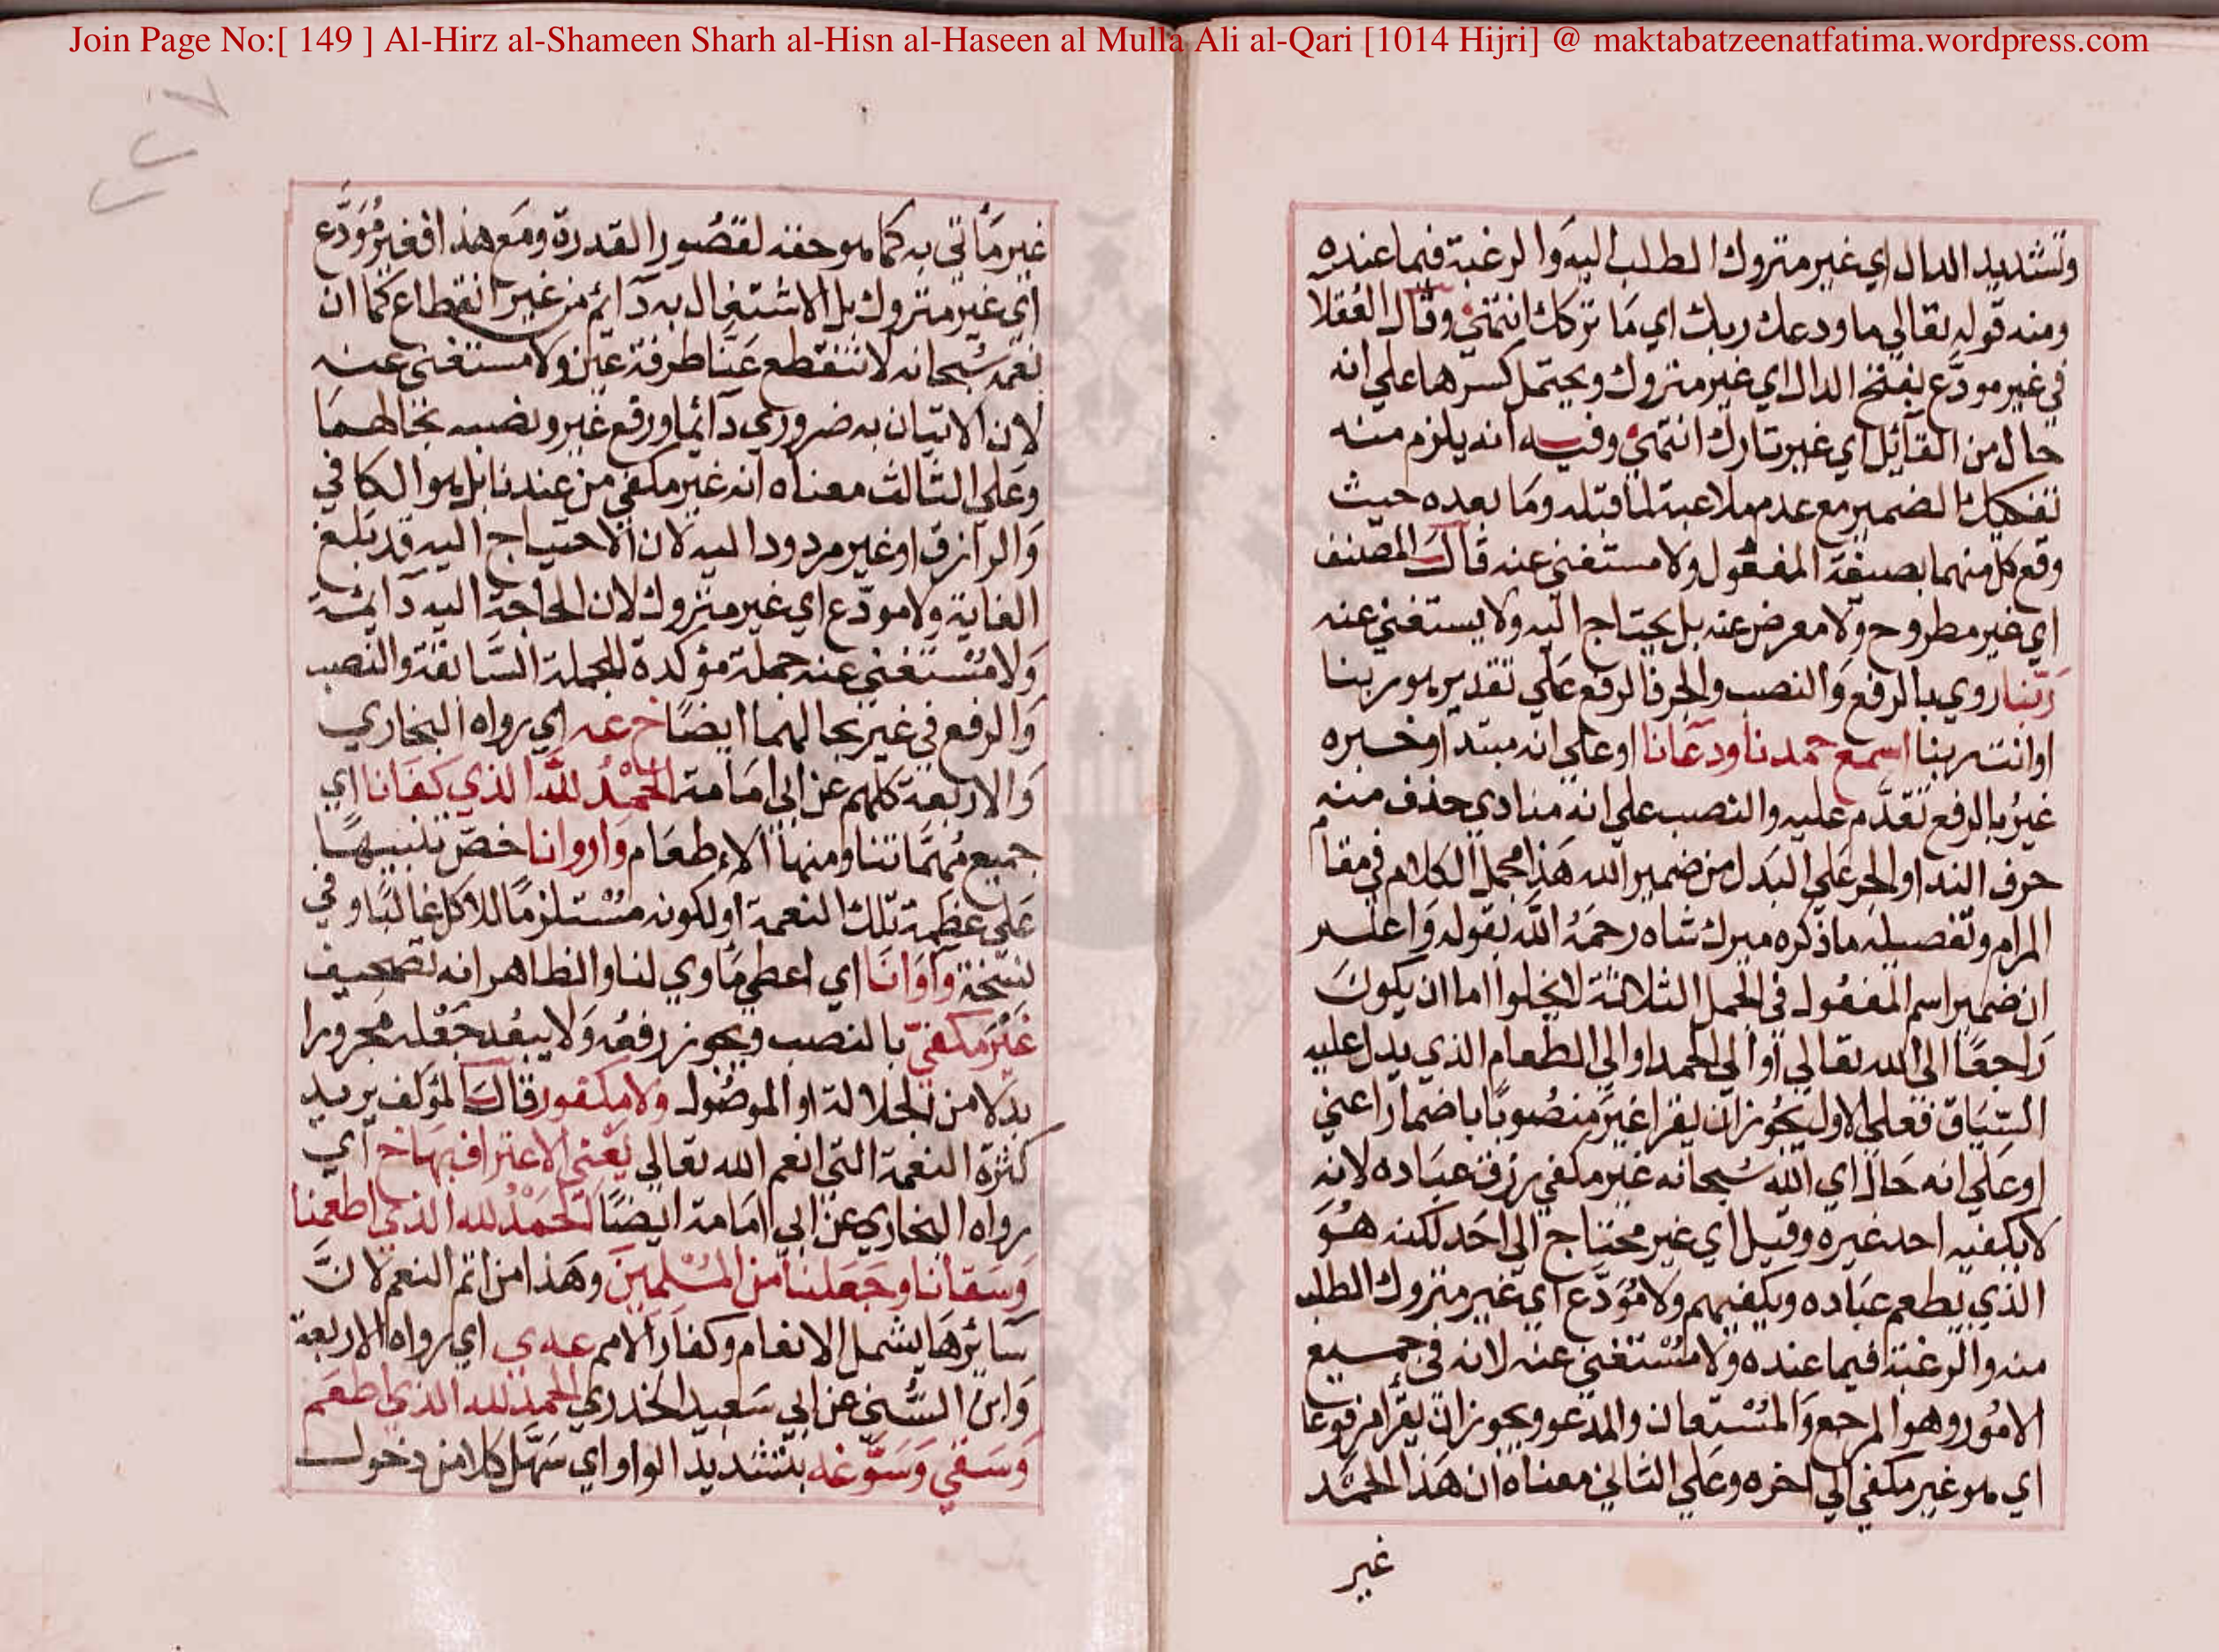 Join Page No:[ 149 ] Al-Hirz al-Shameen Sharh al-Hisn al-Haseen al Mulla Ali al-Qari [1014 Hijri] @ maktabatzeenatfatima.wordpress.com
وتشديد الدال اي غير متروك الطلب اليه والرغبة فيما عنده
ومنه قوله تعالي ما ودعك ربك اي ما تركك انتهي وقال
في غير مودع بفتح الدال اي غير متروك ويحتمل كسرها علي انه
حال من القائل اي غير تارك انتهي وفيه انه يلزم منه
تفكيك الضمير مع عدم ملاعبة لما قبله وما بعده حيث
وقع كل منهما بصيغة المفعول ولا مستغني عنه قال المصنف
اي غير مطروح ولا معرض عنه بل يحتاج اليه ولا يستغني عنه
ربنا روي بالرفع والنصب والجر فالرفع علي تقدير هو ربنا
او انت ربنا اسمع حمدنا ودعانا او علي انه مبتدا وخبره
غير بالرفع تقدم عليه والنصب علي انه منادي حذف منه
حرف الندا والجر علي البدل من ضمير الله هذا مجمل الكلام في مقام
المرام وتفصيله ما ذكره ميرك شاه رحمه الله بقوله واعلم
ان ضمير اسم المفعول في الجمل الثلاثة لا يخلوا اما ان يكون
راجعا الي الله تعالي او الي الحمد او الي الطعام الذي يدل عليه
السياق فعلي الاول يجوز ان يقرا غير منصوبا باضمار اعني
او علي انه حال اي الله سبحانه غير مكفي رزق عباده لانه
لا يكفيه احد غيره وقيل اي غير محتاج الي احد لكنه هو
الذي يطعم عباده ويكفيهم ولا مودع اي غير متروك الطلب
منه والرغبة فيما عنده ولا مستغني عنه لانه في جميع
الامور وهو المرجع والمستعان والمدعو ويجوز ان يقرا مرفوعا
اي هو غير مكفي الي اخره وعلي الثاني معناه ان هذا الحمد
غير
غير مأتي به كما هو حقه لقصور القدرة ومع هذا فغير مودع
اي غير متروك بل الاشتغال به دائم من غير انقطاع كما ان
نعمه سبحانه لا تنقطع عنا طرفة عين ولا مستغني عنه
لان الاتيان به ضروري دائما ورفع غير ونصبه بحالهما
وعلي الثالث معناه انه غير مكفي من عندنا بل هو الكافي
والرازق او غير مردود اليه لان الاحتياج اليه قد بلغ
الغاية ولا مودع اي غير متروك لان الحاجة اليه دائمة
ولا مستغني عنه جملة مؤكدة للجملة السابقة والنصب
والرفع في غير بحالهما ايضا خ عه اي رواه البخاري
والاربعة كلهم عن ابي امامة الحمد لله الذي كفانا اي
جميع مهماتنا ومنها الاطعام واروانا خص تنبيها
علي عظمة تلك النعمة او لكونه مستلزما للاكل غالبا وفي
نسخة وآوانا اي اعطي مأوي لنا والظاهر انه تصحيف
غير مكفي بالنصب ويجوز رفعه ولا يبعد جعله مجرورا
بدلا من الجلالة او الموصول ولا مكفور قال المؤلف يريد
كثرة النعمة التي انعم الله تعالي يعني الاعتراف بها خ اي
رواه البخاري عن ابي امامة ايضا الحمد لله الذي اطعمنا
وسقانا وجعلنا من المسلمين وهذا من اتم النعم لان
سائرها يشمل الانعام وكفار الامم عه ي اي رواه الاربعة
وابن السني عن ابي سعيد الخدري الحمد لله الذي اطعم
وسقي وسوغه بتشديد الواو اي سهل كلا من دخول